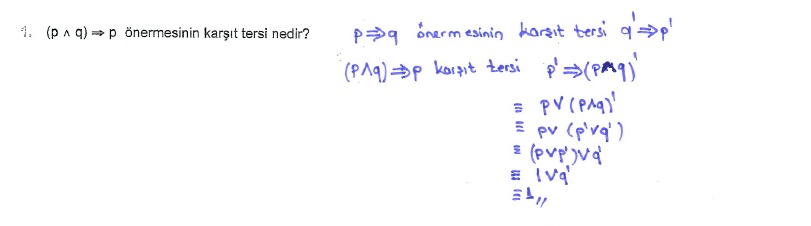 1. (p ∧ q) ⇒ p önermesinin karşıt tersi nedir?
p⇒q önermesinin karşıt tersi q'⇒p'
(p∧q)⇒p karşıt tersi p'⇒(p∧q)'
≡ p∨(p∧q)'
≡ p∨(p'∨q')
≡ (p∨p')∨q'
≡ 1∨q'
≡1,,